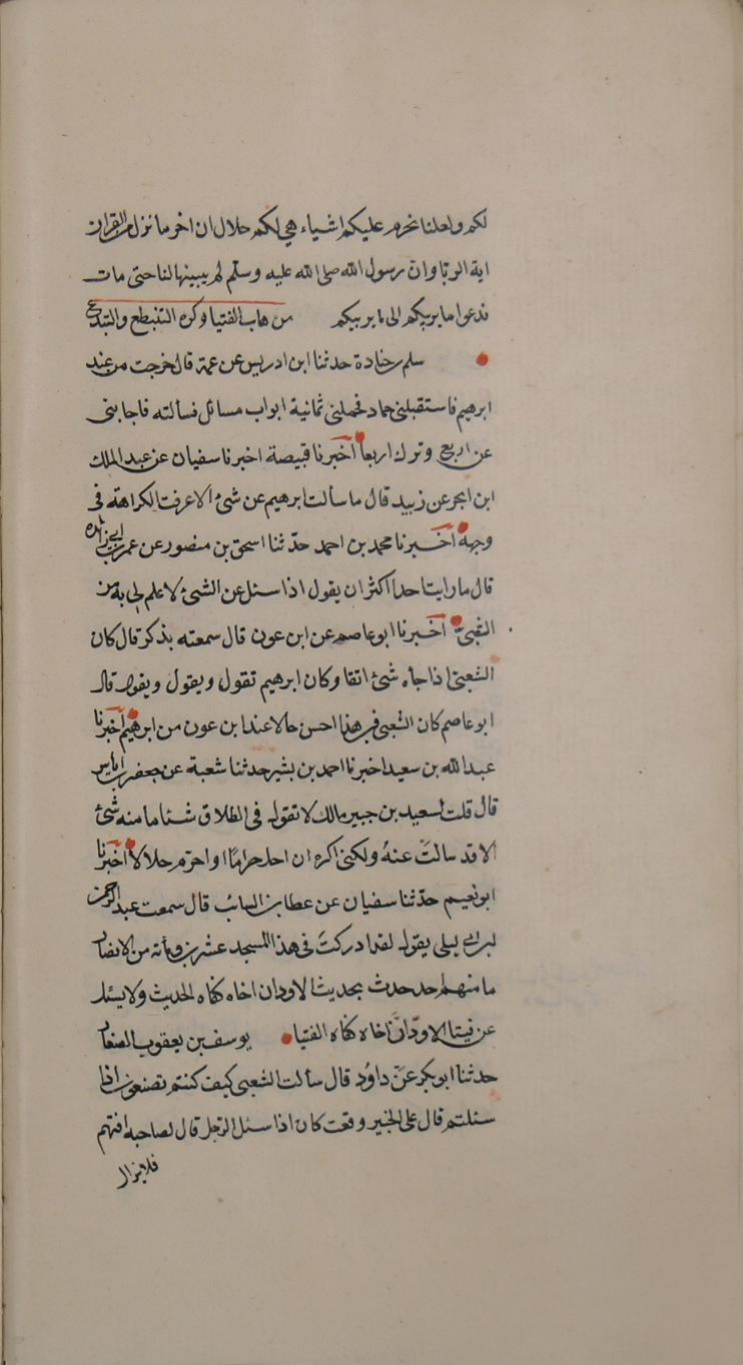 لكم ولعلنا نحرم عليكم اشياء هي لكم حلال ان اخر ما نزل من القران
اية الربا وان رسول الله صلى الله عليه وسلم لم يبينها لنا حتى مات
فدعوا ما يريبكم الى ما لا يريبكم من هاب الفتيا وكره التنطع والتبدع
سلم بن جنادة حدثنا ابن ادريس عن عمه قال خرجت من عند
ابرهيم فاستقبلني حماد فحملني ثمانية ابواب مسائل فسألته فاجابني
عن اربع وترك اربعا اخبرنا قبيصة اخبرنا سفيان عن عبد الملك
ابن ابجر عن زبيد قال ما سألت ابرهيم عن شئ الا عرفت الكراهة في
وجهه اخبرنا محمد بن احمد حدثنا اسحق بن منصور عن عمر بن ابي زائدة
قال ما رايت احدا اكثر ان يقول اذا سئل عن الشئ لا علم لي به من
الشعبي اخبرنا ابو عاصم عن ابن عون قال سمعته يذكر قال كان
الشعبي اذا جاه شئ اتقا وكان ابرهيم تقول ويقول ويقول قال
ابو عاصم كان الشعبي في هذا احسن حالا عند ابن عون من ابرهيم اخبرنا
عبد الله بن سعيد اخبرنا احمد بن بشير حدثنا شعبة عن جعفر بن اياس
قال قلت لسعيد بن جبير مالك لا تقول في الطلاق شئا ما منه شئ
الا قد سالت عنه ولكني اكره ان احل حراما او احرم حلالا اخبرنا
ابو نعيم حدثنا سفيان عن عطا بن السائب قال سمعت عبد الرحمن
بن ابي ليلى يقول لقد ادركت في هذا المسجد عشرين ومأة من الانصار
ما منهم احد حدث بحديث الا ود ان اخاه كفاه الحديث ولا يسئل
عن فتيا الا ود ان اخاه كفاه الفتيا يوسف بن يعقوب الصفار
حدثنا ابو بكر عن داود قال سألت الشعبي كيف كنتم تصنعون اذا
سئلتم قال على الخبير وقعت كان اذا سئل الرجل قال لصاحبه افتهم
فلا يزال